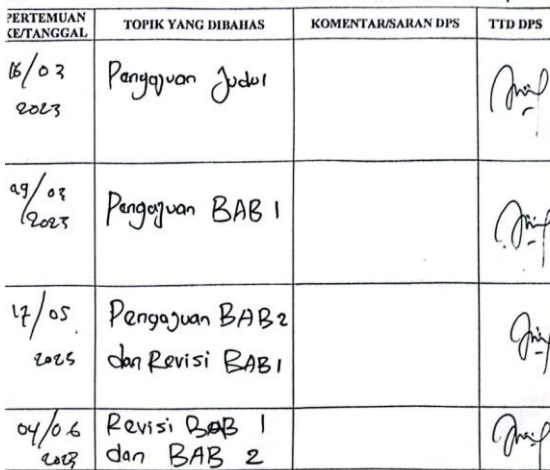 PERTEMUAN KE/TANGGAL TOPIK YANG DIBAHAS KOMENTAR/SARAN DPS TTD DPS
16/03 2023 Pengajuan Judul
29/03 2023 Pengajuan BAB 1
17/05 2023 Pengajuan BAB 2
dan Revisi BAB 1
04/06 2023 Revisi BAB 1
dan BAB 2